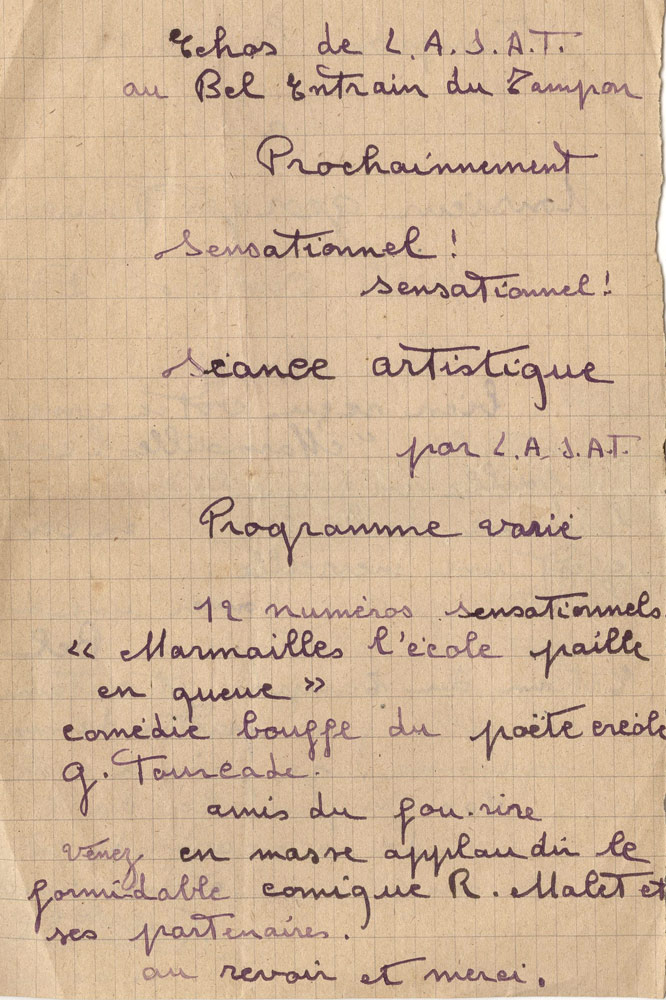 Echos de L.A.J.A.T.
au Bel Entrain du Tampon
Prochainnement
Sensationnel !
sensationnel !
Séance artistique
par L.A.J.A.T.
Programme varié
12 numéros sensationnels
« Marmailles l'école paille
en queue »
comédie bouffe du poëte créole
G. Fourcade.
amis du fou-rire
venez en masse applaudir le
formidable comique R. Malet et
ses partenaires.
au revoir et merci.